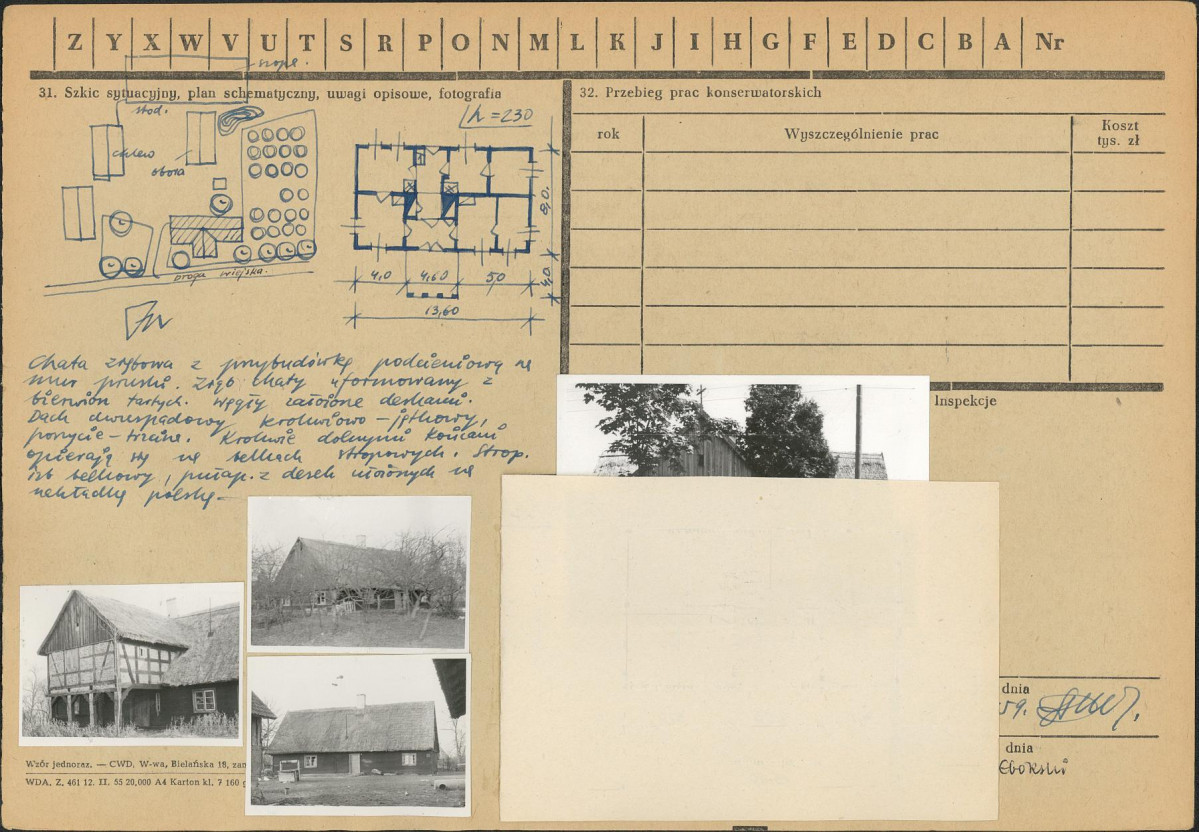 Z Y X W V U T S R P O N M L K J I H G F E D C B A Nr
szopa.
31. Szkic sytuacyjny, plan schematyczny, uwagi opisowe, fotografia
stod.
chlew
obora
droga wiejska.
h = 230
8,0.
4,0.
4,0 4,60 5,0
13,60
Chata zrębowa z przybudówką podcieniową na
mur pruski. Zrąb chaty uformowany z
bierwion tartych. Węgły założone deskami.
Dach dwuspadowy krokwiowo-jętkowy,
poszycie - trzcina. Krokwie dolnymi końcami
opierają się na belkach stropowych. Strop.
izb belkowy, pułap. z desek ułożonych na
nakładkę polską
32. Przebieg prac konserwatorskich
rok
Wyszczególnienie prac
Koszt
tys. zł
Inspekcje
dnia
59.
dnia
Wzór jednoraz. — CWD, W-wa, Bielańska 18, zam
WDA. Z. 461 12. II. 55 20,000 A4 Karton kl. 7 160 g